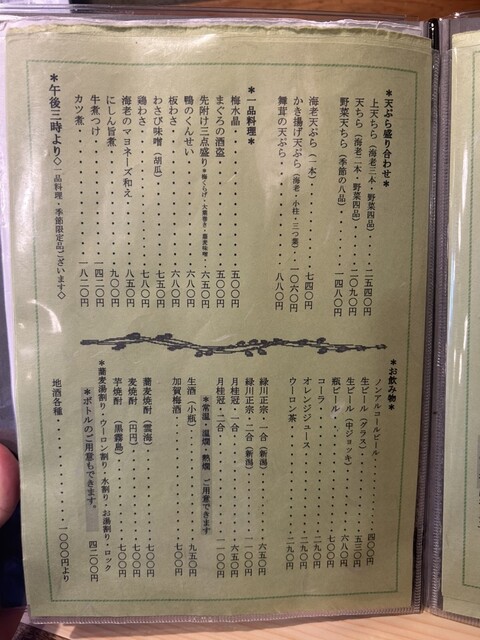 ＊天ぷら盛り合わせ＊
上天ちら（海老三本・野菜四品）・・・二五四〇円
天ちら（海老二本・野菜四品）・・・二〇九〇円
野菜天ちら（季節の八品）・・・一四八〇円
海老天ぷら（一本）・・・七四〇円
かき揚げ天ぷら（海老・小柱・三つ葉）・・・一〇六〇円
舞茸の天ぷら・・・八八〇円
＊一品料理＊
梅水晶・・・五〇〇円
まぐろの酒盗・・・五〇〇円
先附け三点盛り＊梅くらげ・大葉巻き・蕎麦味噌・六五〇円
鴨のくんせい・・・六八〇円
板わさ・・・六八〇円
わさび味噌（胡瓜）・・・七五〇円
鶏わさ・・・七八〇円
海老のマヨネーズ和え・・・八五〇円
にしん旨煮・・・九〇〇円
牛煮つけ・・・一四二〇円
カツ煮・・・一八二〇円
＊午後三時より◇一品料理・季節限定品ございます◇
＊お飲み物＊
ノンアルコールビール・・・四〇〇円
生ビール（グラス）・・・五三〇円
生ビール（中ジョッキ）・・・六八〇円
瓶ビール・・・七〇〇円
コーラ・・・二九〇円
オレンジジュース・・・二九〇円
ウーロン茶・・・二九〇円
緑川正宗・一合（新潟）・・・六五〇円
緑川正宗・二合（新潟）・・・一一〇〇円
月桂冠・一合・・・六五〇円
月桂冠・二合・・・一一〇〇円
＊常温・温燗・熱燗 ご用意できます
生酒（小瓶）・・・九五〇円
加賀梅酒・・・七〇〇円
蕎麦焼酎（雲海）・・・七〇〇円
麦焼酎（円円）・・・七〇〇円
芋焼酎（黒霧島）・・・七〇〇円
＊ボトルのご用意もできます。・・・四二〇〇円
＊蕎麦湯割り・ウーロン割り・水割り・お湯割り・ロック
地酒各種・・・一〇〇〇円より